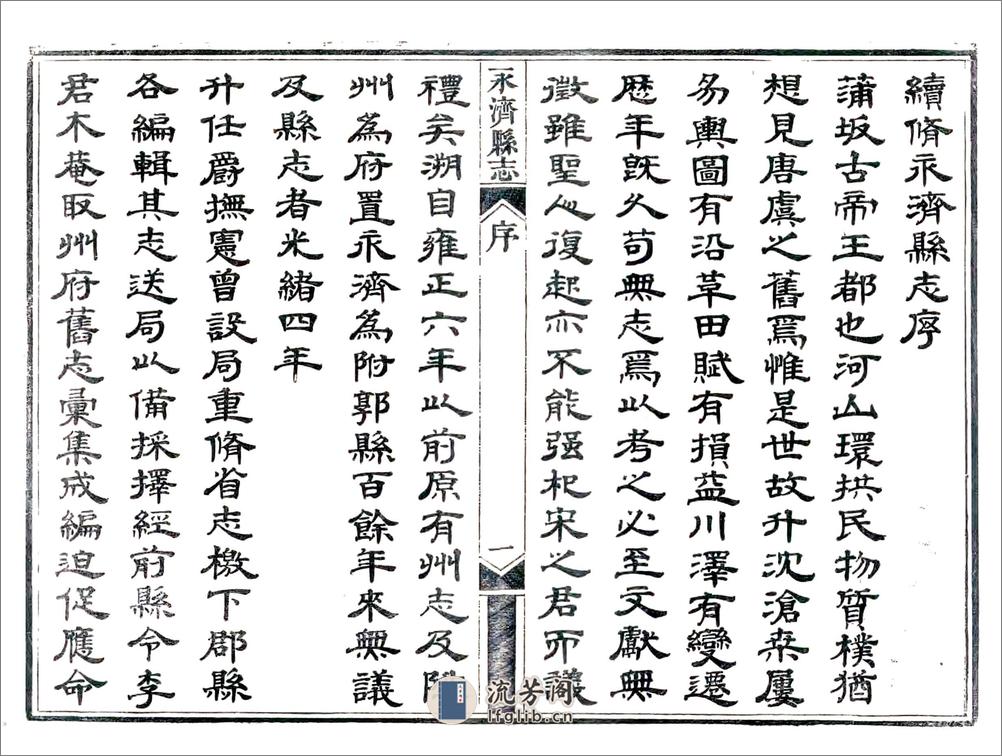 續脩永濟縣志序
蒲坂古帝王都也河山環拱民物質樸猶
想見唐虞之舊焉惟是世故升沈滄桒屢
易輿圖有沿革田賦有損益川澤有變遷
歷年既久苟無志焉以考之必至文獻無
徵雖聖人復起亦不能强杞宋之君而議
永濟縣志
序
一
禮矣溯自雍正六年以前原有州志及
州為府置永濟為附郭縣百餘年來無議
及縣志者光緒四年
升任爵撫憲曾設局重脩省志檄下郡縣
各編輯其志送局以備採擇經前縣令李
君木菴取州府舊志彙集成編迫促應命
流芳阁
lfglib.cn